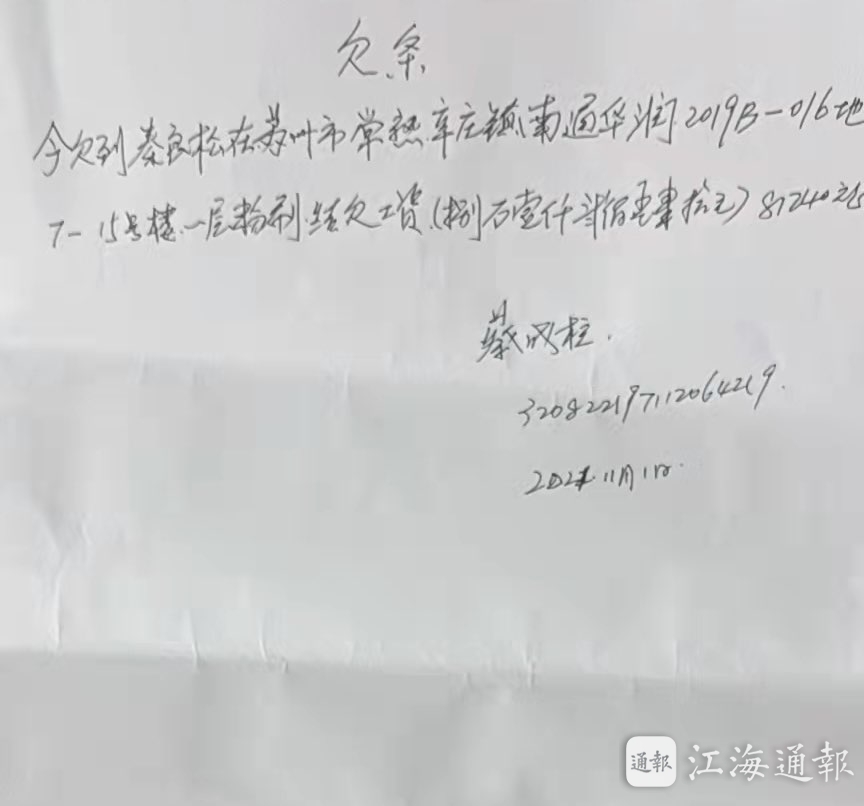 欠条
今欠到秦良松在苏州市常熟辛庄镇南通华润2019B-016地
7-15号楼.一层粉刷.结欠工资.(捌万壹仟贰佰肆拾元)81240元
蔡成柱.
320822197112064219.
2021.11月1日.
通報 江海通報